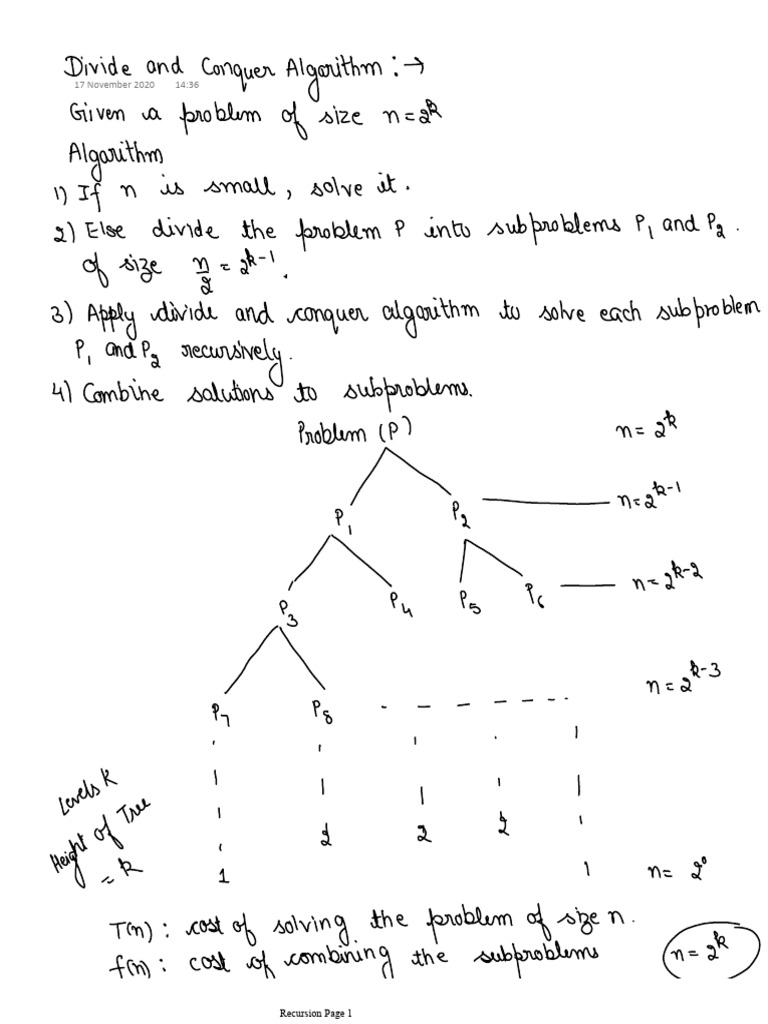 Divide and Conquer Algorithm :→
17 November 2020 14:36
Given a problem of size n=2^k
Algorithm
1) If n is small, solve it.
2) Else divide the problem P into subproblems P₁ and P₂.
of size n/2 = 2^k-1.
3) Apply divide and conquer algorithm to solve each subproblem
P₁ and P₂ recursively.
4) Combine solutions to subproblems.
Problem (P) n = 2^k
P₁ P₂ n=2^k-1
P₃ P₄ P₅ P₆ n=2^k-2
P₇ P₈ n=2^k-3
Levels k
Height of Tree
= k
2 2 2
1 1 n= 2⁰
T(n) : cost of solving the problem of size n.
f(n) : cost of combining the subproblems n=2^k
Recursion Page 1